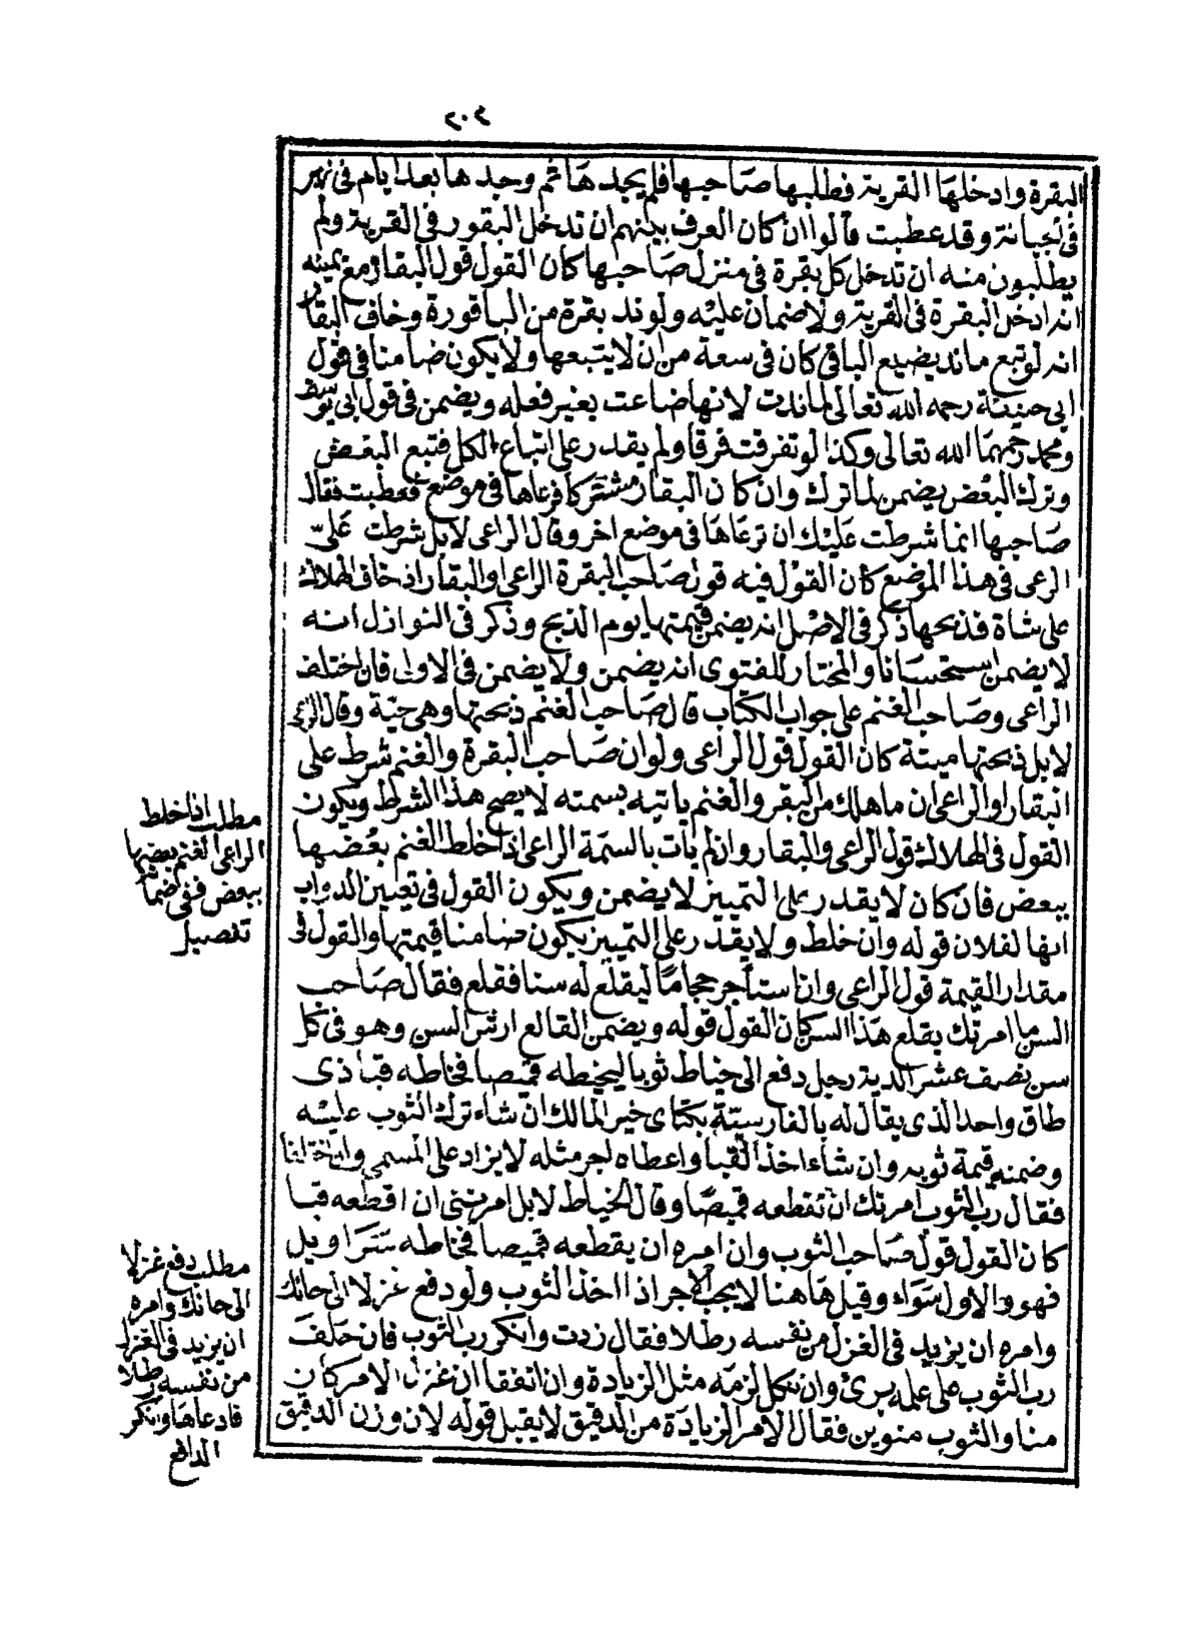 ٢٠٤
البقرة وادخلها القرية فطلبها صاحبها فلم يجدها ثم وجدها بعد ايام فى نهر
فى لجبانة وقد عطبت قالوا ان كان العرف بينهم ان تدخل البقور فى القرية ولم
يطلبون منه ان تدخل كل بقرة فى منزل صاحبها كان القول قول البقار مع يمينه
انه ادخل البقرة فى القرية ولا ضمان عليه ولو ند بقرة من الباقورة وخاف البقار
انه لو تبع ماند يضيع الباقى كان فى سعة من ان لا يتبعها ولا يكون ضامنا فى قول
ابى حنيفة رحمه الله تعالى لماندت لانها ضاعت بغير فعله ويضمن فى قول ابى يوسف
ومحمد رحمهما الله تعالى وكذا لو تفرقت فرقا ولم يقدر على اتباع الكل فتبع البعض
وترك البعض يضمن لما ترك وان كان البقار مشتركا فرعاها فى موضع فعطبت فقال
صاحبها انما شرطت عليك ان ترعاها فى موضع اخر وقال الراعى لا بل شرطت علىّ
الرعى فى هذا الموضع كان القول فيه قول صاحب البقرة الراعى او البقار اذ خاف الهلاك
على شاة فذبحها ذكر فى الاصل انه يضمن قيمتها يوم الذبح وذكر فى النوازل انه
لا يضمن استحسانا والمختار للفتوى انه يضمن ولا يضمن فى الاولى فان اختلف
الراعى وصاحب الغنم على جواب الكتاب قال صاحب الغنم ذبحتها وهى حية وقال الراعى
لا بل ذبحتها ميتة كان القول قول الراعى ولو ان صاحب البقرة والغنم شرط على
البقار او الراعى ان ما هلك من البقر والغنم ياتيه بسمته لا يصح هذا الشرط ويكون
القول فى الهلاك قول الراعى والبقار وان لم يات بالسمة الراعى اذا خلط الغنم بعضها
ببعض فان كان لا يقدر على التمييز لا يضمن ويكون القول فى تعيين الدواب
انها لفلان قوله وان خلط ولا يقدر على التمييز يكون ضامنا قيمتها والقول فى
مقدار القيمة قول الراعى وان استأجر حجاما ليقلع له سنا فقلع فقال صاحب
السن ما امرتك بقلع هذا السن كان القول قوله ويضمن القالع ارش السن وهو فى كل
سن نصف عشر الدية رجل دفع الى خياط ثوبا ليخيطه قميصا فخاطه قبا ذى
طاق واحد الذى يقال له بالفارسية يكتاى خير المالك ان شاء ترك الثوب عليه
وضمنه قيمة ثوبه وان شاء اخذ القبا واعطاه اجر مثله لا يزاد على المسمى وان اختلفا
فقال رب الثوب امرتك ان تقطعه قميصا وقال الخياط لا بل امرتنى ان اقطعه قبا
كان القول قول صاحب الثوب وان امره ان يقطعه قميصا فخاطه سراويل
فهو والاول سواء وقيل هاهنا لا يجب الاجر اذا اخذ الثوب ولو دفع غزلا الى حائك
وامره ان يزيد فى الغزل من نفسه رطلا فقال زدت وانكر رب الثوب فان حلف
رب الثوب على علمه برئ وان نكل لزمه مثل الزيادة وان اتفقا ان غزل الامر كان
منا والثوب منوين فقال الامر الزيادة من الدقيق لا يقبل قوله لان وزن الدقيق
مطلب اذا خلط
الراعى الغنم بعضها
ببعض ففى ضمانه
تفصيل
مطلب دفع غزلا
الى حائك وامره
ان يزيد فى الغزل
من نفسه رطلا
فادعاها وانكر
الدافع